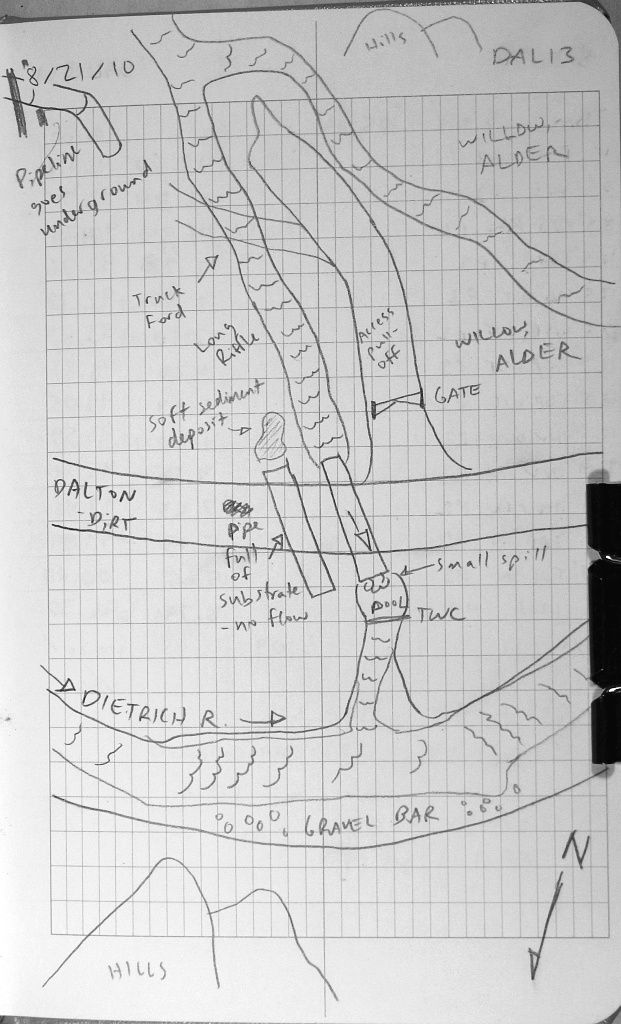 Hills
DAL13
8/21/10
Pipeline
goes
underground
WILLOW,
ALDER
Truck
Ford
Long
Riffle
Access
Pull-
off
WILLOW,
ALDER
GATE
soft sediment
deposit
DALTON
-DiRT
pipe
full
of
substrate
-no flow
small spill
POOL
TWC
DIETRICH R.
GRAVEL BAR
N
HILLS